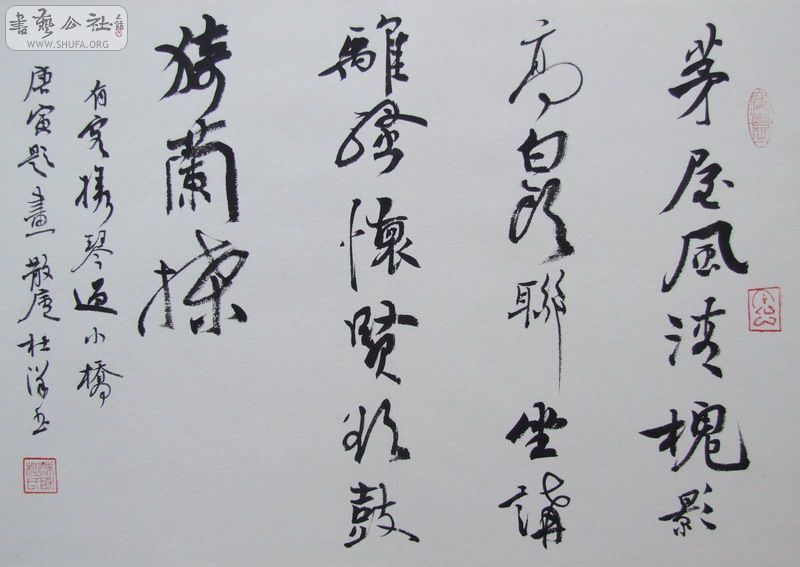 茅屋風清槐影
高白頭聯坐講
離騷懷賢欲鼓
猗蘭操
有客攜琴過小橋
唐寅題畫 散杜洋
書藝公社
WWW.SHUFA.ORG